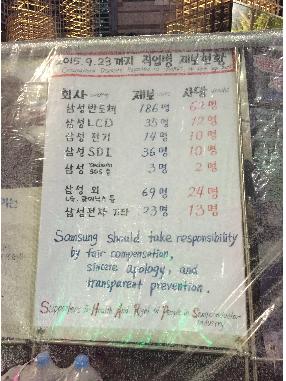 2015.9.23까지 직업병 제보현황
Occupational Diseases Reported to
회사 제보 사망
삼성반도체 186명 62명
삼성LCD 33명 12명
삼성전기 14명 10명
삼성SDI 36명 10명
삼성 SDS 등 3명 2명
삼성 외 69명 24명
LG, 하이닉스 등
삼성전자 기타 23명 13명
Samsung should take responsibility
by fair compensation,
sincere apology, and
transparent prevention.
Supporters for Health And Right of People in Semiconductor
Industry